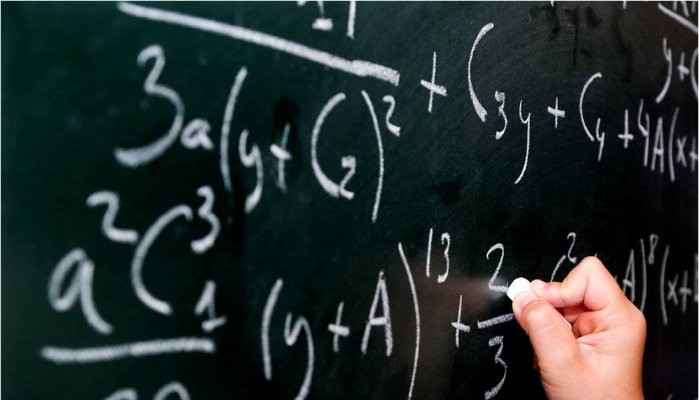 3a(y+C₂)² + C₃y + Cy + 4A(x+
a²C₁³ (y+A)¹³ + 2/3 C² A)⁸(x+